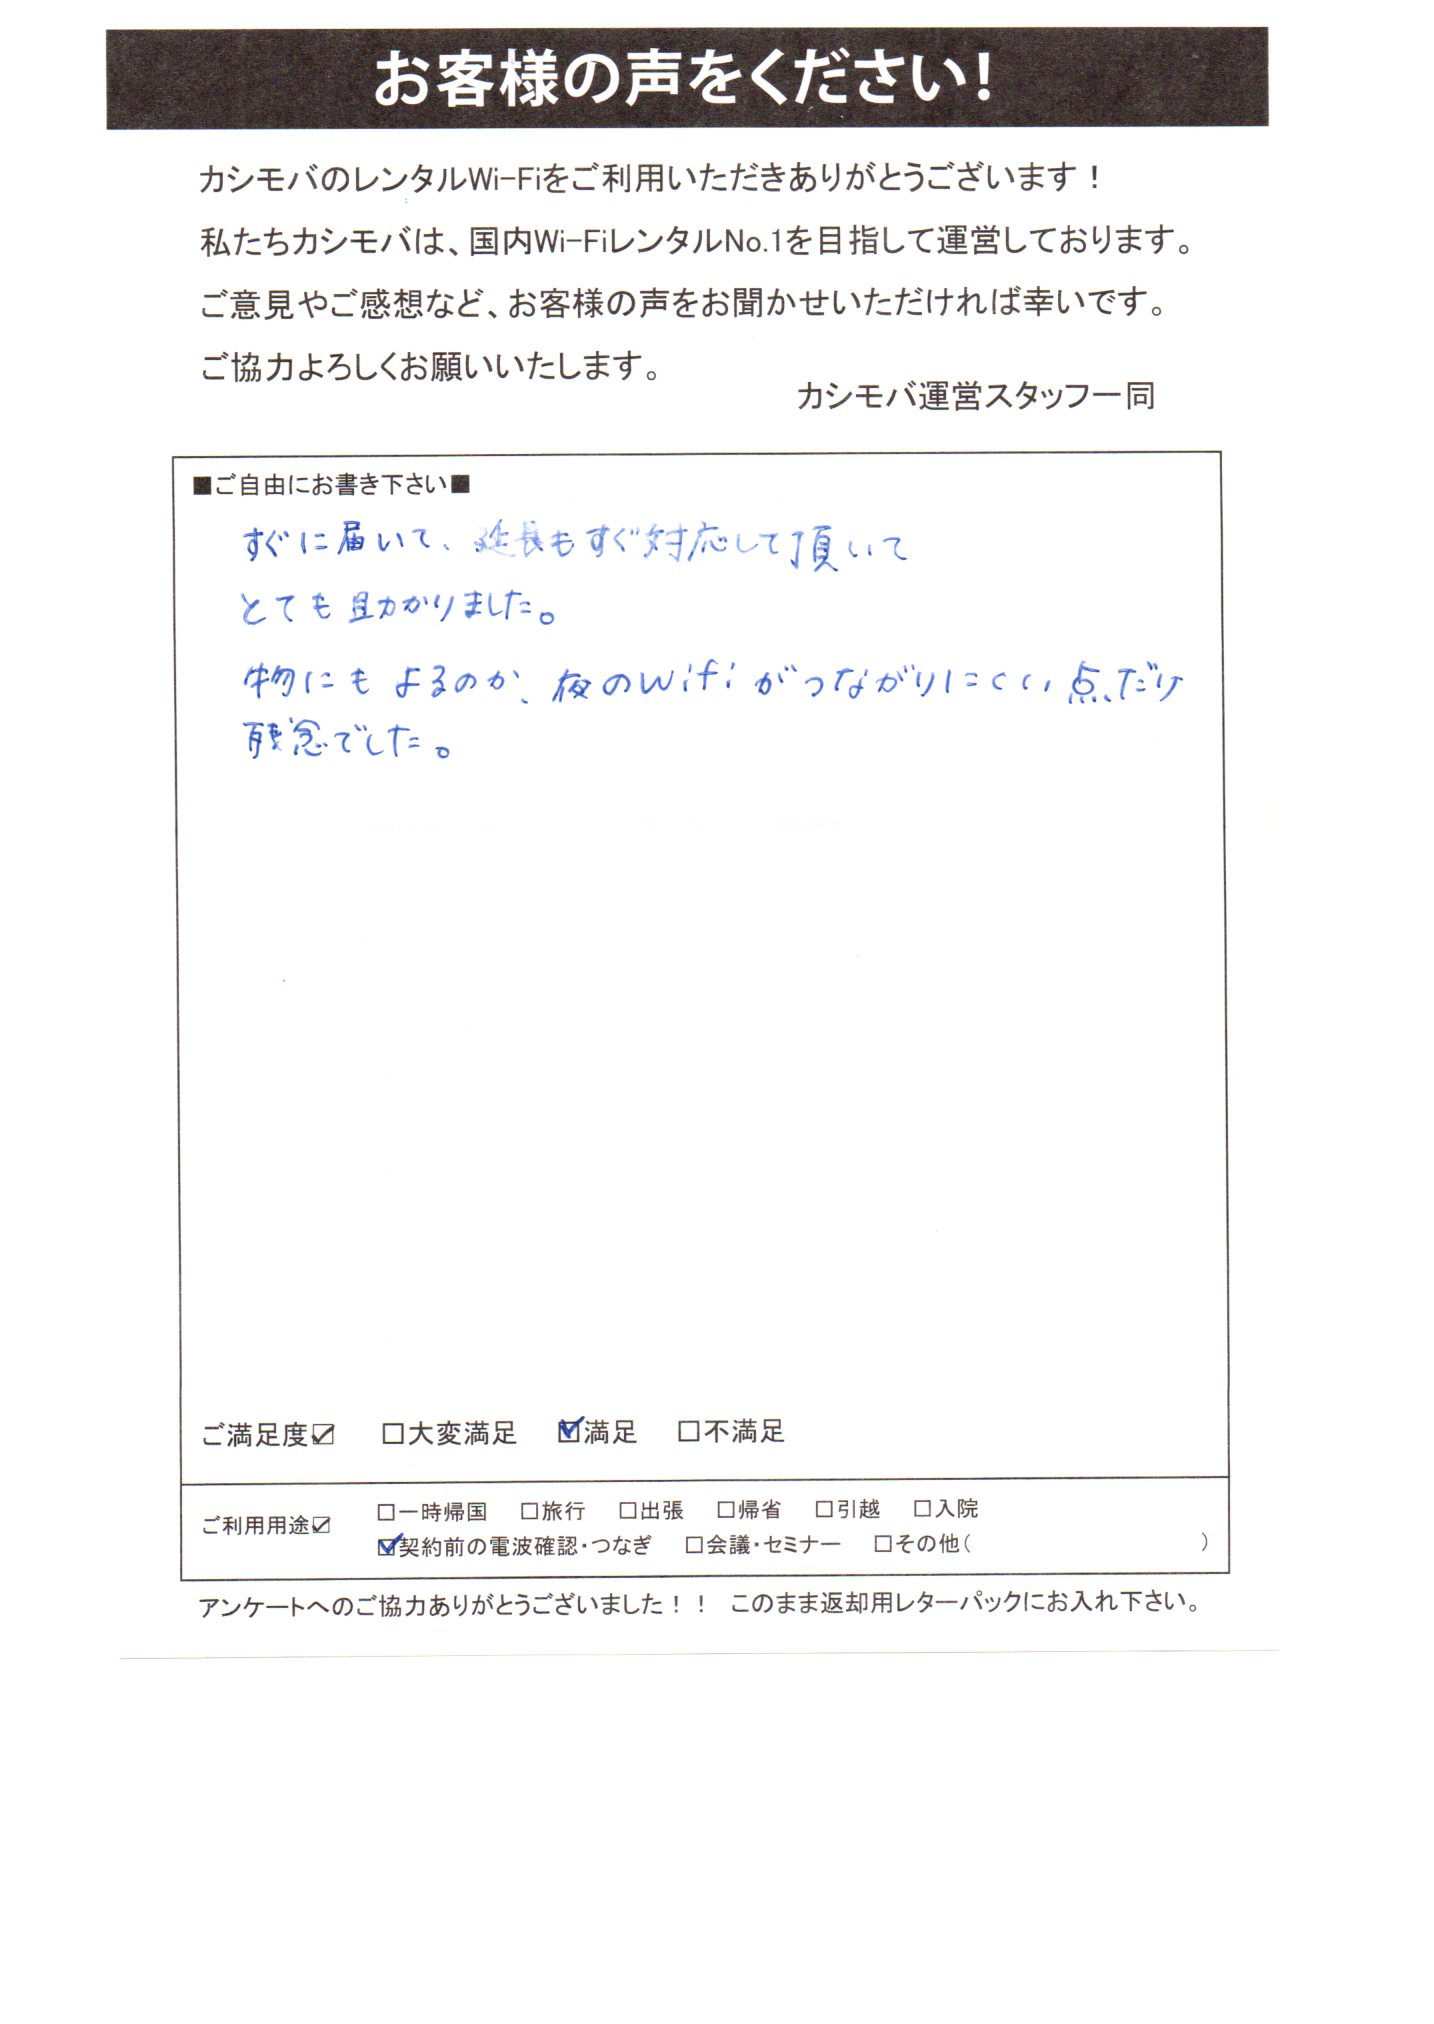 お客様の声をください!
カシモバのレンタルWi-Fiをご利用いただきありがとうございます！
私たちカシモバは、国内Wi-FiレンタルNo.1を目指して運営しております。
ご意見やご感想など、お客様の声をお聞かせいただければ幸いです。
ご協力よろしくお願いいたします。
カシモバ運営スタッフ一同
■ご自由にお書き下さい■
すぐに届いて、延長もすぐ対応して頂いて
とても助かりました。
物にもよるのか、夜のwifiがつながりにくい点だけ
残念でした。
ご満足度☑ □大変満足 ☑満足 □不満足
ご利用用途☑ □一時帰国 □旅行 □出張 □帰省 □引越 □入院
☑契約前の電波確認・つなぎ □会議・セミナー □その他( )
アンケートへのご協力ありがとうございました！！ このまま返却用レターパックにお入れ下さい。